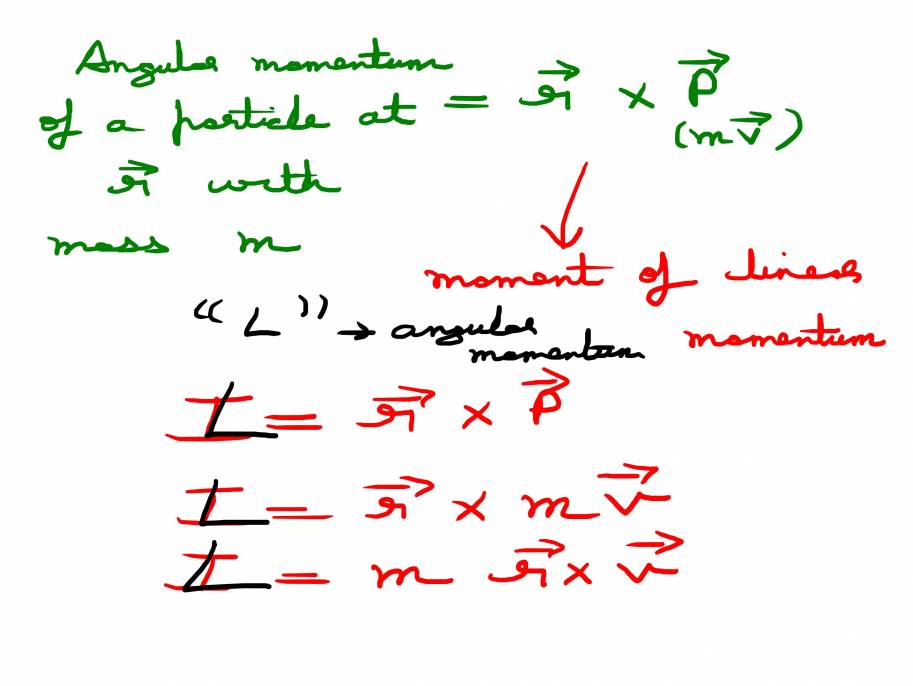 Angular momentum
of a particle at = r⃗ × P⃗
(mv⃗)
r⃗ with
mass m
moment of linear
momentum
"L" → angular
momentum
L = r⃗ × P⃗
L = r⃗ × m v⃗
L = m r⃗ × v⃗